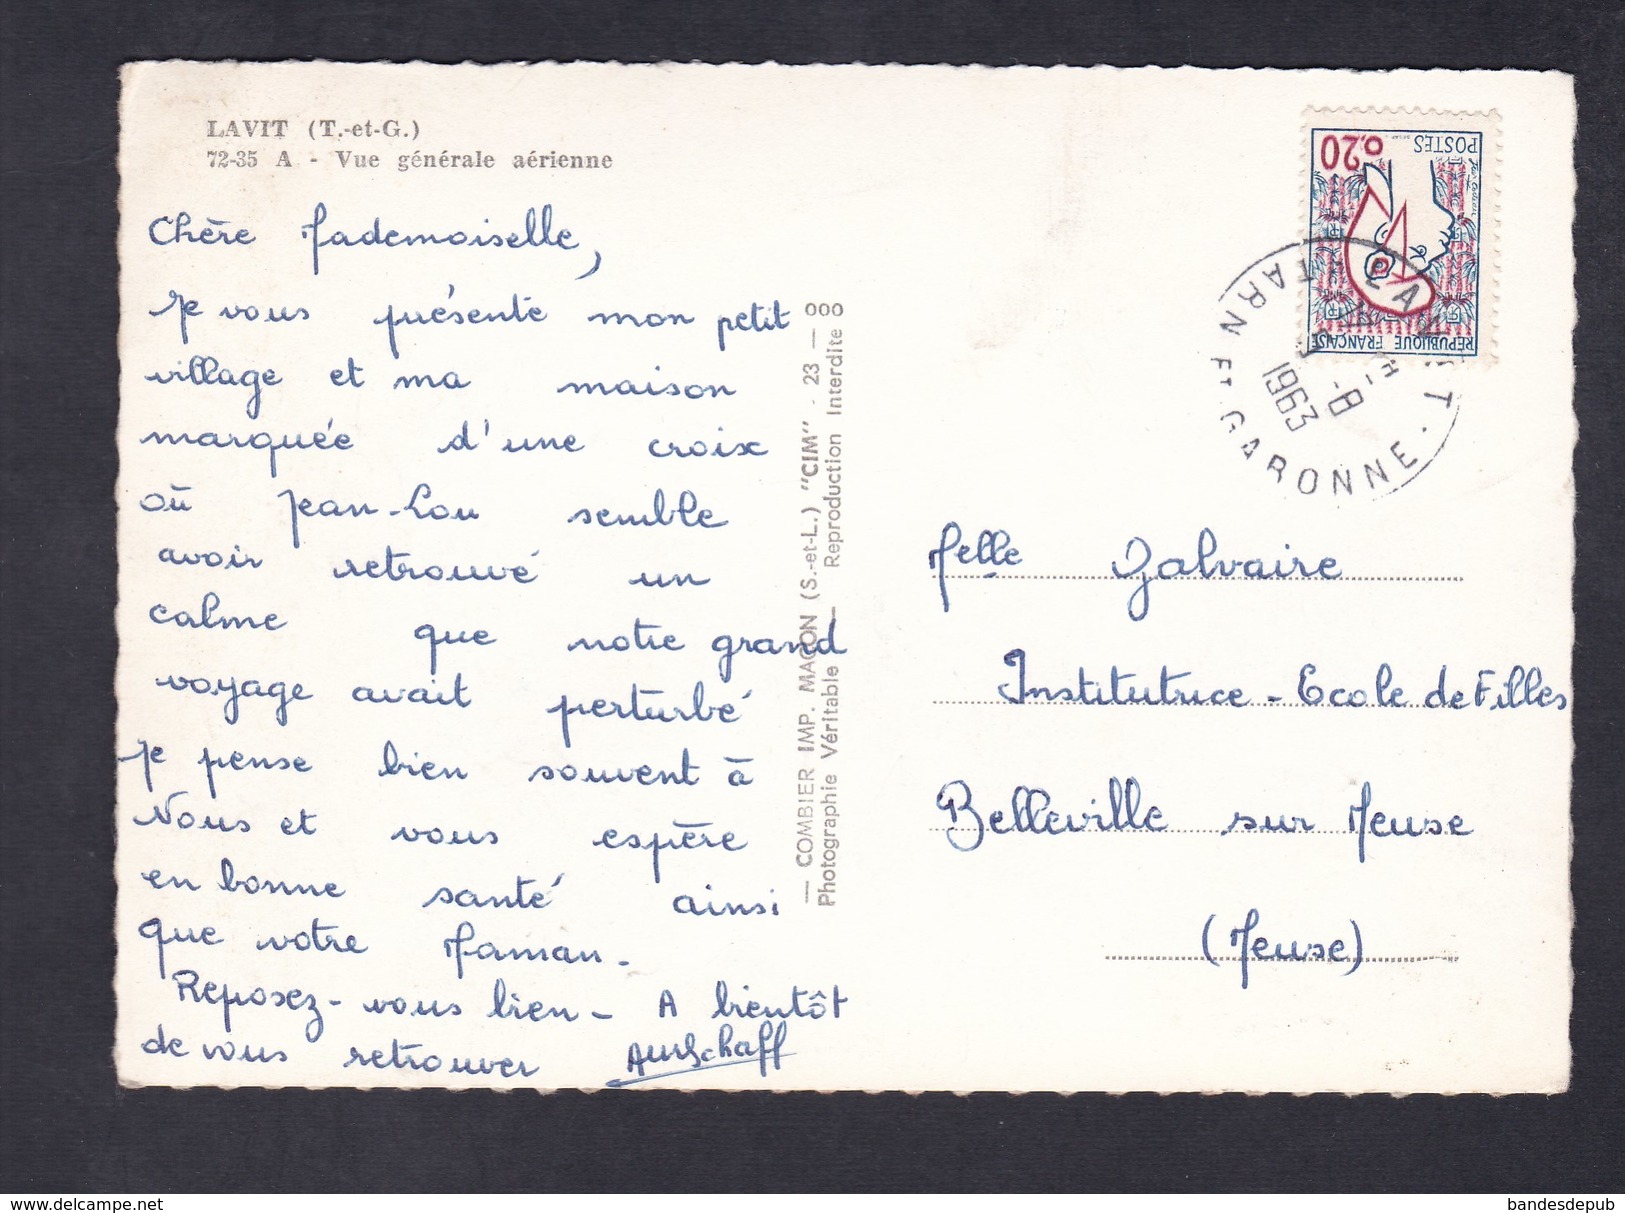 LAVIT (T.-et-G.)
72-35 A - Vue générale aérienne
Chère Mademoiselle,
Je vous présente mon petit
village et ma maison
marquée d'une croix
où Jean-Lou semble
avoir retrouvé un
calme que notre grand
voyage avait perturbé
Je pense bien souvent à
Vous et vous espère
en bonne santé ainsi
que votre Maman.
Reposez-vous bien - A bientôt
de vous retrouver
— COMBIER IMP. MACON (S.-et-L.) "CIM" - 23 — ooo
Photographie Véritable — Reproduction Interdite
0,20
POSTES
RÉPUBLIQUE FRANÇAISE
LAVIT
TARN ET GARONNE
-8
1963
Melle Galvaire
Institutrice - Ecole de Filles
Belleville sur Meuse
(Meuse)
bandesdepub